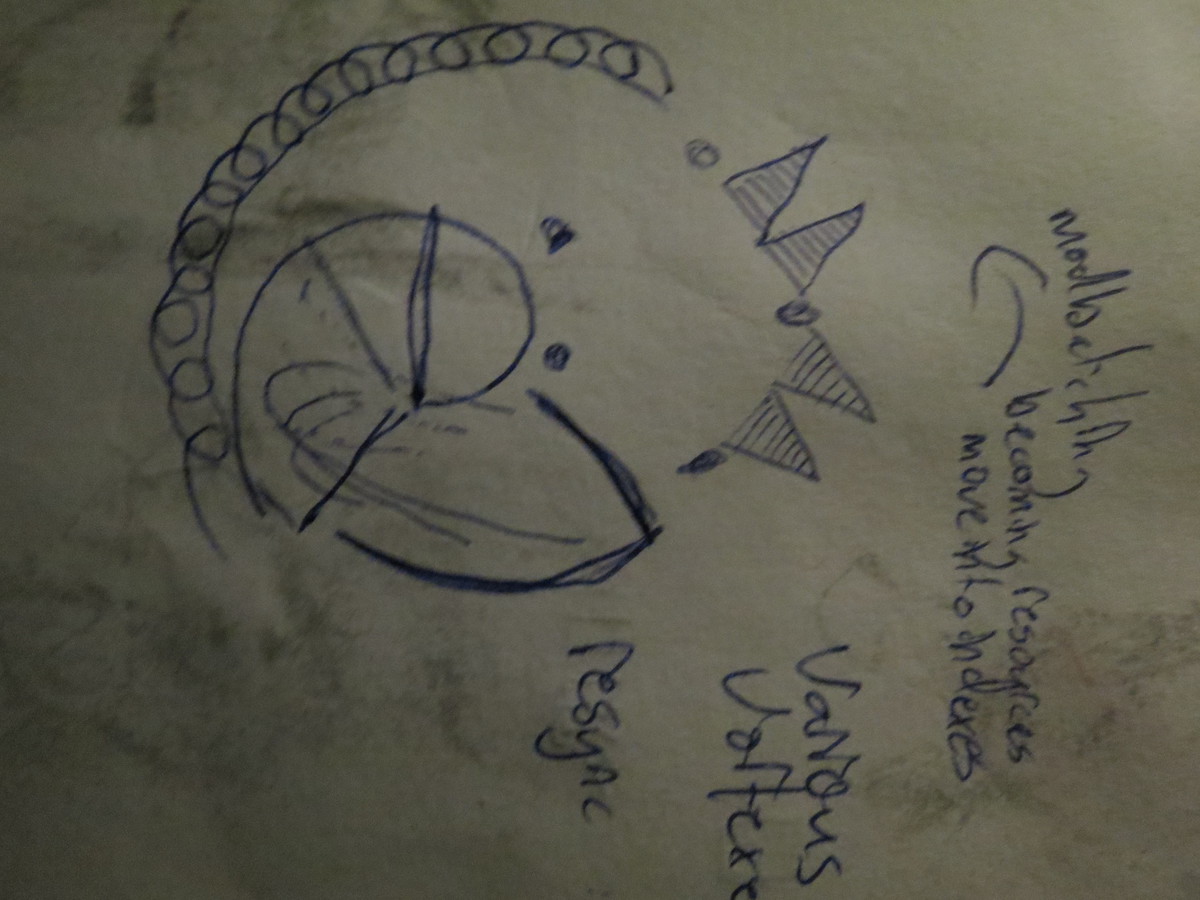 moodbatching
becoming resources
move into indexes
Various
Vortexe
resync